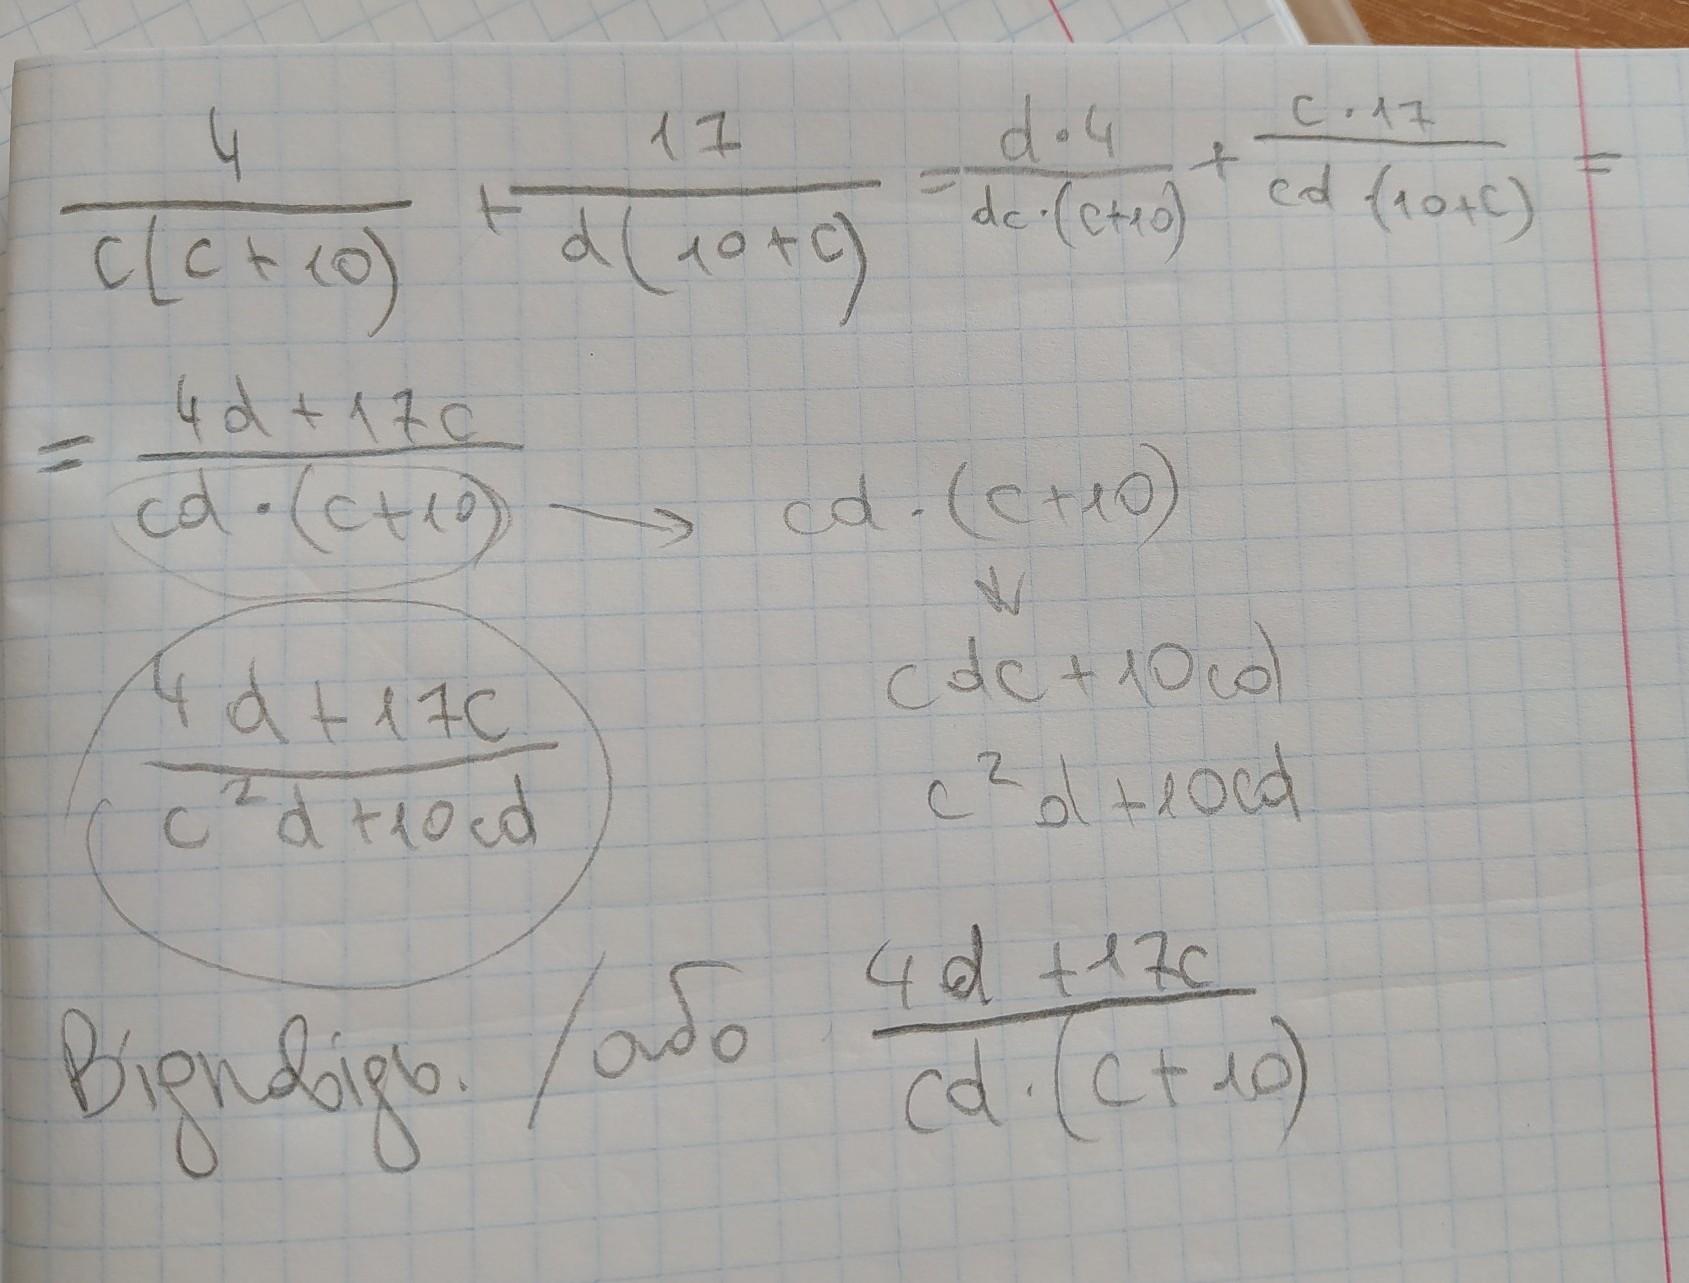 4/(c(c+10)) + 17/(d(10+c)) = d·4/(dc·(c+10)) + c·17/(cd·(10+c)) =
= (4d+17c)/(cd·(c+10)) → cd·(c+10)
↓
cdc+10cd
(4d+17c)/(c²d+10cd)
c²d+10cd
Відповідь. / або (4d+17c)/(cd·(c+10))